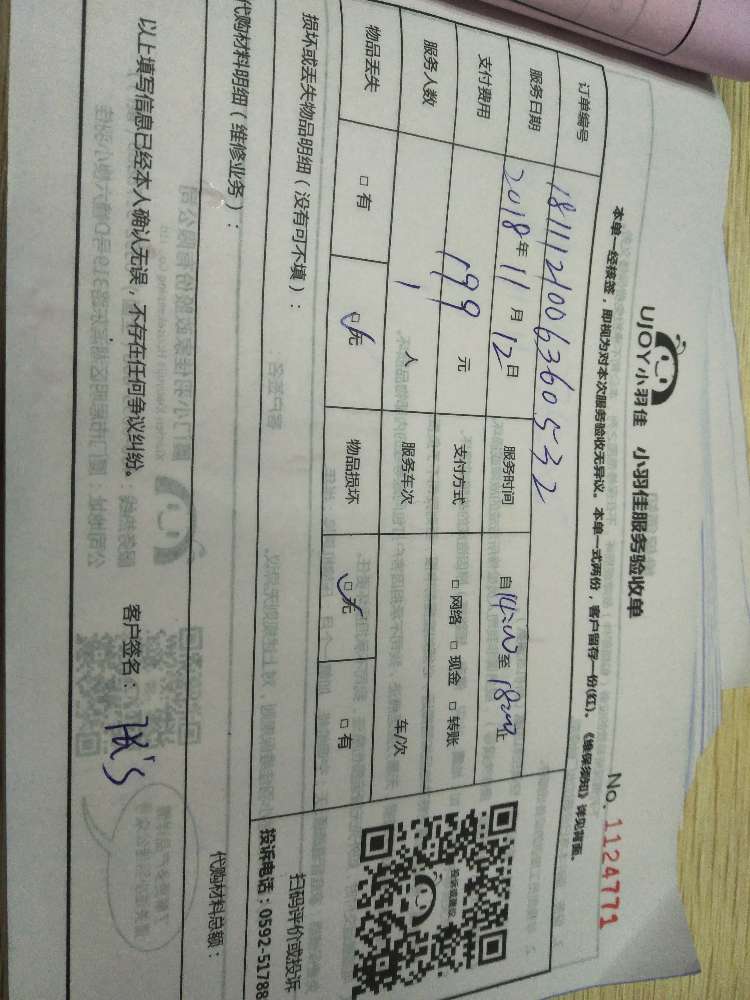 UJOY小羽佳 小羽佳服务验收单
No. 1124771
本单一经接签，即视为对本次服务验收无异议。本单一式两份，客户留存一份(红)。《维保须知》详见背面。
订单编号 1811121006360532
服务日期 2018年11月12日 服务时间 自14:00至18:00止
支付费用 199元 支付方式 □网络 □现金 □转账
服务人数 1人 服务车次 车/次
物品丢失 □有 □无 物品损坏 □无 □有
投诉或建议
扫码评价或投诉
投诉电话：0592-51788
损坏或丢失物品明细（没有可不填）：
代购材料明细（维修业务）：
代购材料总额：
以上填写信息已经本人确认无误，不存在任何争议纠纷。 客户签名：